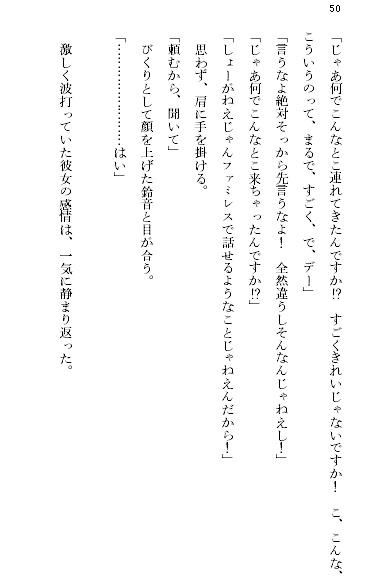 50
「じゃあ何でこんなとこ連れてきたんですか!?　すごくきれいじゃないですか！　こ、こんな、
こういうのって、まるで、すごく、で、デー」
「言うなよ絶対そっから先言うなよ！　全然違うしそんなんじゃねえし！」
「じゃあ何でこんなとこ来ちゃったんですか!?」
「しょーがねえじゃんファミレスで話せるようなことじゃねえんだから！」
思わず、肩に手を掛ける。
「頼むから、聞いて」
びくりとして顔を上げた鈴音と目が合う。
「……………………はい」
激しく波打っていた彼女の感情は、一気に静まり返った。